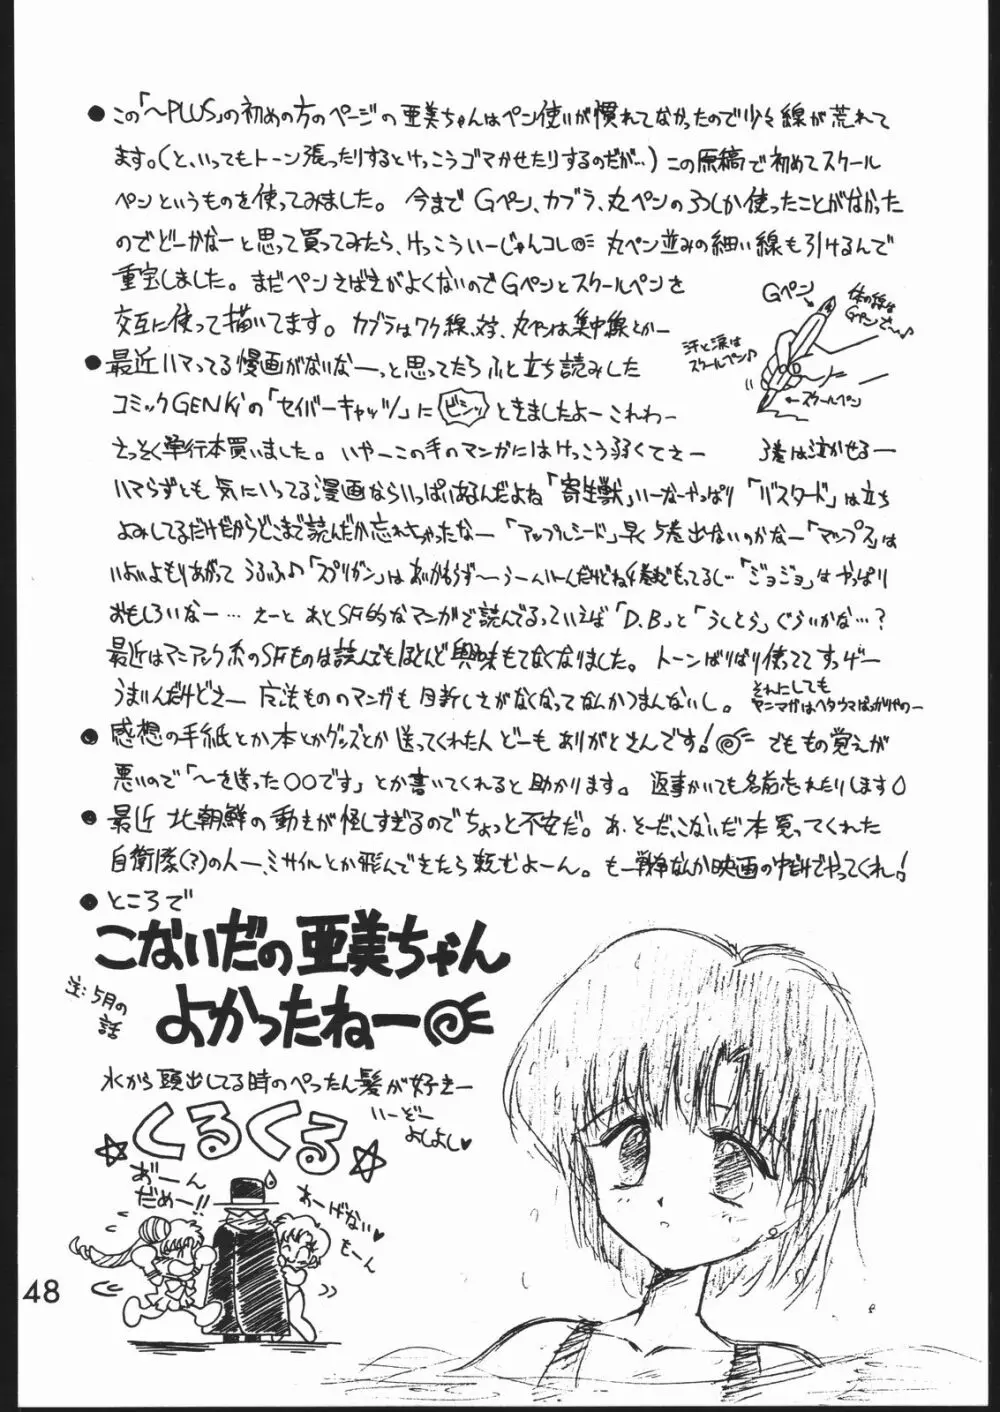 ●この「～PLUS」の初めの方のページの亜美ちゃんはペン使いが慣れてなかったので少々線が荒れて
ます。(と、いってもトーン張ったりするとけっこうゴマかせたりするのだが…)この原稿で初めてスクール
ペンというものを使ってみました。今までGペン、カブラ、丸ペンの3つしか使ったことがなかった
のでどーかなーと思って買ってみたら、けっこういーじゃんコレ 丸ペン並みの細い線も引けるんで
重宝しました。まだペンさばきがよくないのでGペンとスクールペンを
交互に使って描いてます。カブラはワク線、丸ペンは集中線とかー
Gペン
体の線はGペンで♪
汗と涙はスクールペン♪
←スクールペン
●最近ハマってる漫画がないなーっと思ってたらふと立ち読みした
コミックGENKiの「セイバーキャッツ」にビシッときましたよーこれわー
さっそく単行本買いました。いやーこの手のマンガにはけっこう弱くてさー
3巻は泣かせるー
ハマらずとも気にいってる漫画ならいっぱいあるんだよね「寄生獣」いーなーやっぱり「バスタード」は立ち
よみしてるだけだからどこまで読んだか忘れちゃったなー「アップルシード」早く5巻出ないのかなー「マップス」は
いよいよもりあがってうふふ♪「スプリガン」はあいかわらず～うーんいーんだけどね4巻までもってるし…「ジョジョ」はやっぱり
おもしろいなー…えーとあとSF的なマンガで読んでるっていえば「D.B」と「うしとら」ぐらいかな…?
最近はマニアック系のSFものは読んでもほとんど興味もてなくなりました。トーンばりばり使ててすっげー
うまいんだけどさー魔法もののマンガも目新しさがなくなってなんかつまんないし。
それにしても
ヤンマガはヘタウマばっかりやのー
●感想の手紙とか本とかグッズとか送ってくれた人どーもありがとさんです! でももの覚えが
悪いので「～を送った○○です」とか書いてくれると助かります。返事かいても名前忘れたりします
●最近北朝鮮の動きが怪しすぎるのでちょっと不安だ。あ、そーだ、こないだ本買ってくれた
自衛隊(?)の人ー、ミサイルとか飛んできたら頼むよーん。もー戦争なんか映画の中だけでやってくれ!
●ところで
こないだの亜美ちゃん
よかったねー
注:5月の話
水から頭出してる時のぺったん髪が好きー
いーぞー
よしよし♥
☆くるくる☆
あ゛ーん
だめー!!
あーげない♥
もーん
48